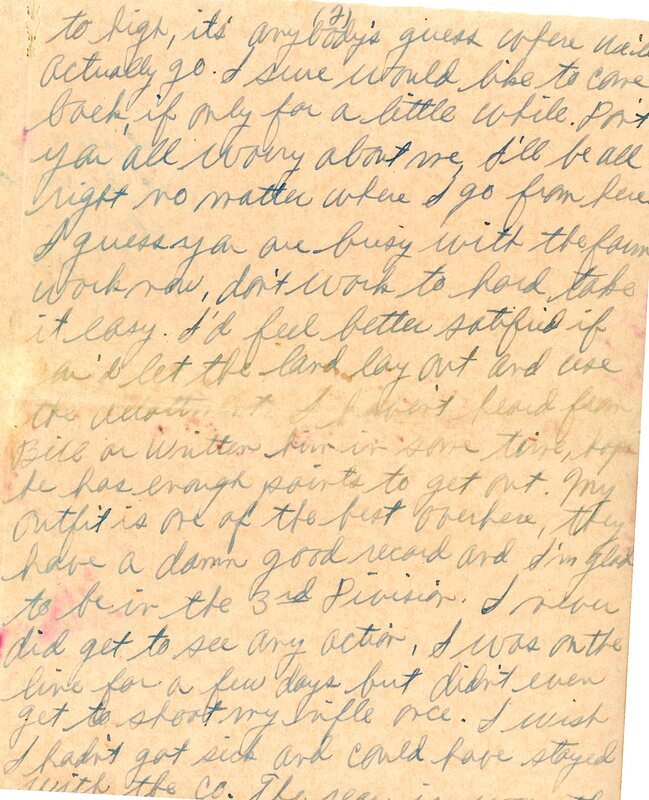 (2)
to high, it's anybody's guess where we'll
actually go. I sure would like to come
back, if only for a little while. Don't
you all worry about me, I'll be all
right no matter where I go from here
I guess you are busy with the farm
work now, don't work to hard take
it easy. I'd feel better satified if
you'd let the land lay out and use
the I haven't heard from
Bill or written him in some time, hope
he has enough points to get out. My
outfit is one of the best overhere, they
have a damn good record and I'm glad
to be in the 3rd Division. I never
did get to see any action, I was on the
line for a few days but didn't even
get to shoot my rifle once. I wish
I hadn't got sick and could have stayed
with the co. The